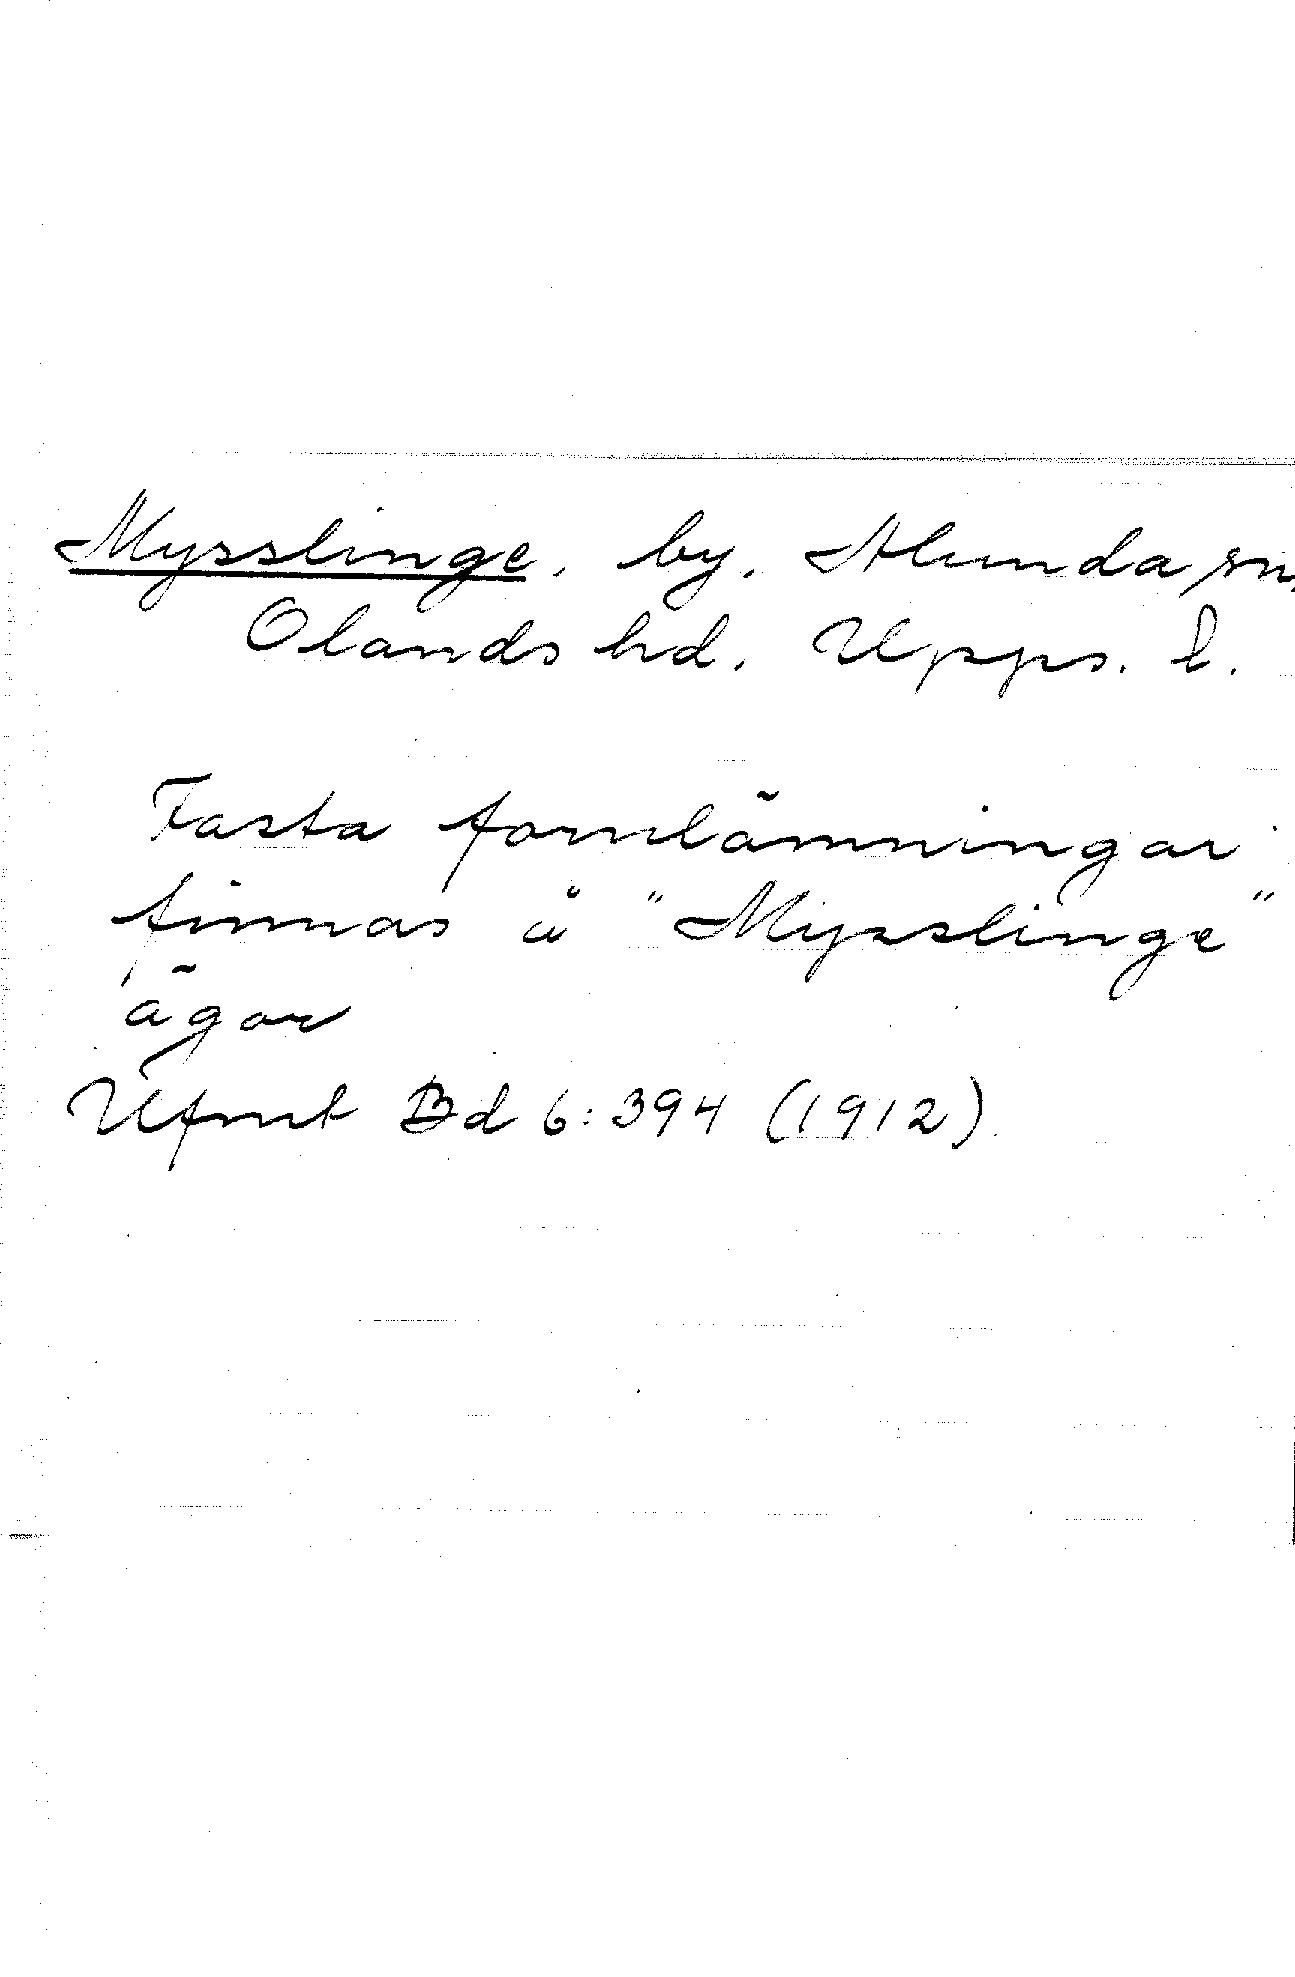 Mysslinge, by, Alunda sn,
Olands hd, Upps. l.
Fasta fornlämningar
finnas å "Mysslinge"
ägor
Ufmt Bd 6:394 (1912)